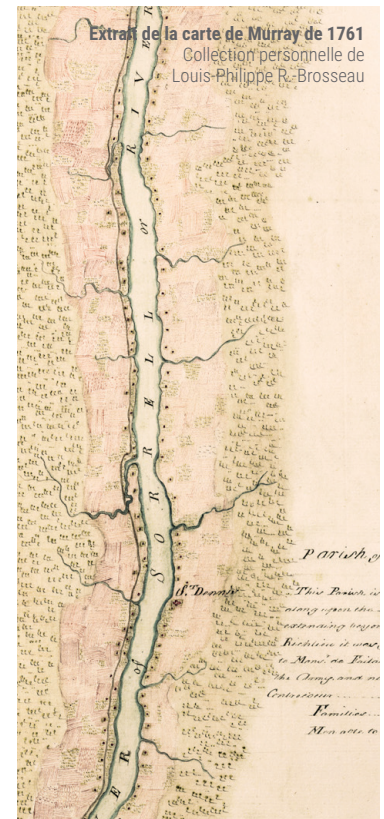 Extrait de la carte de Murray de 1761
Collection personnelle de
Louis-Philippe R.-Brosseau
RIVER
or
SORRELL
of
ER
St. Dennis
Parish of
This Parish is
along upon the
extending beyon
Richlieu it was
the Army, and no
Contrecoeur
Families
Men able to